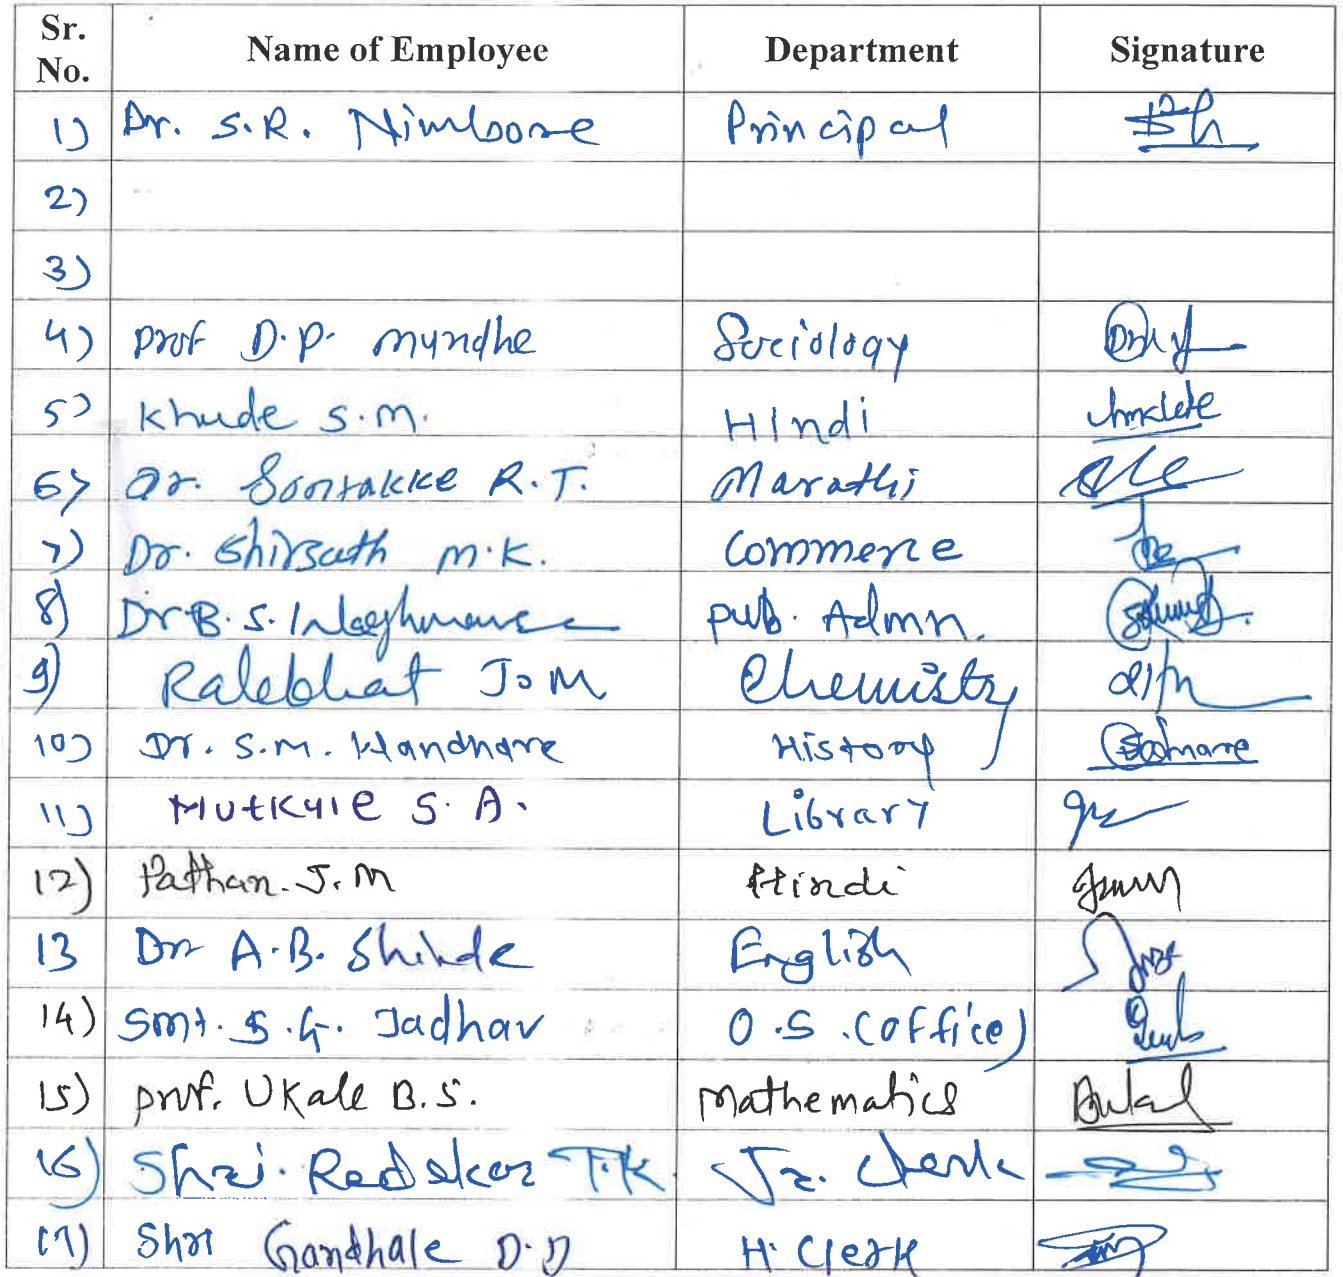 Sr. No. Name of Employee Department Signature
1) Dr. S.R. Nimbore Principal
2)
3)
4) Prof D.P. Mundhe Sociology
5) Khude S.M. HIndi
6) Dr. Sonrakke R.T. Marathi
7) Dr. Shirsath M.K. Commerce
8) Dr B.S. Waghmare Pub. Admn.
9) Ralebhat J.M Chemistry
10) Dr. S.M. Handhare History
11) Mutkule S.A. Library
12) Pathan. J.M Hindi
13 Dr A.B. Shinde English
14) Smt. S.G. Jadhav O.S. (Office)
15) Prof. Ukale B.S. Mathematics
16) Shri. Redekar T.K. Jr. Clerk
17) Shri Gandhale D.D H. Clerk